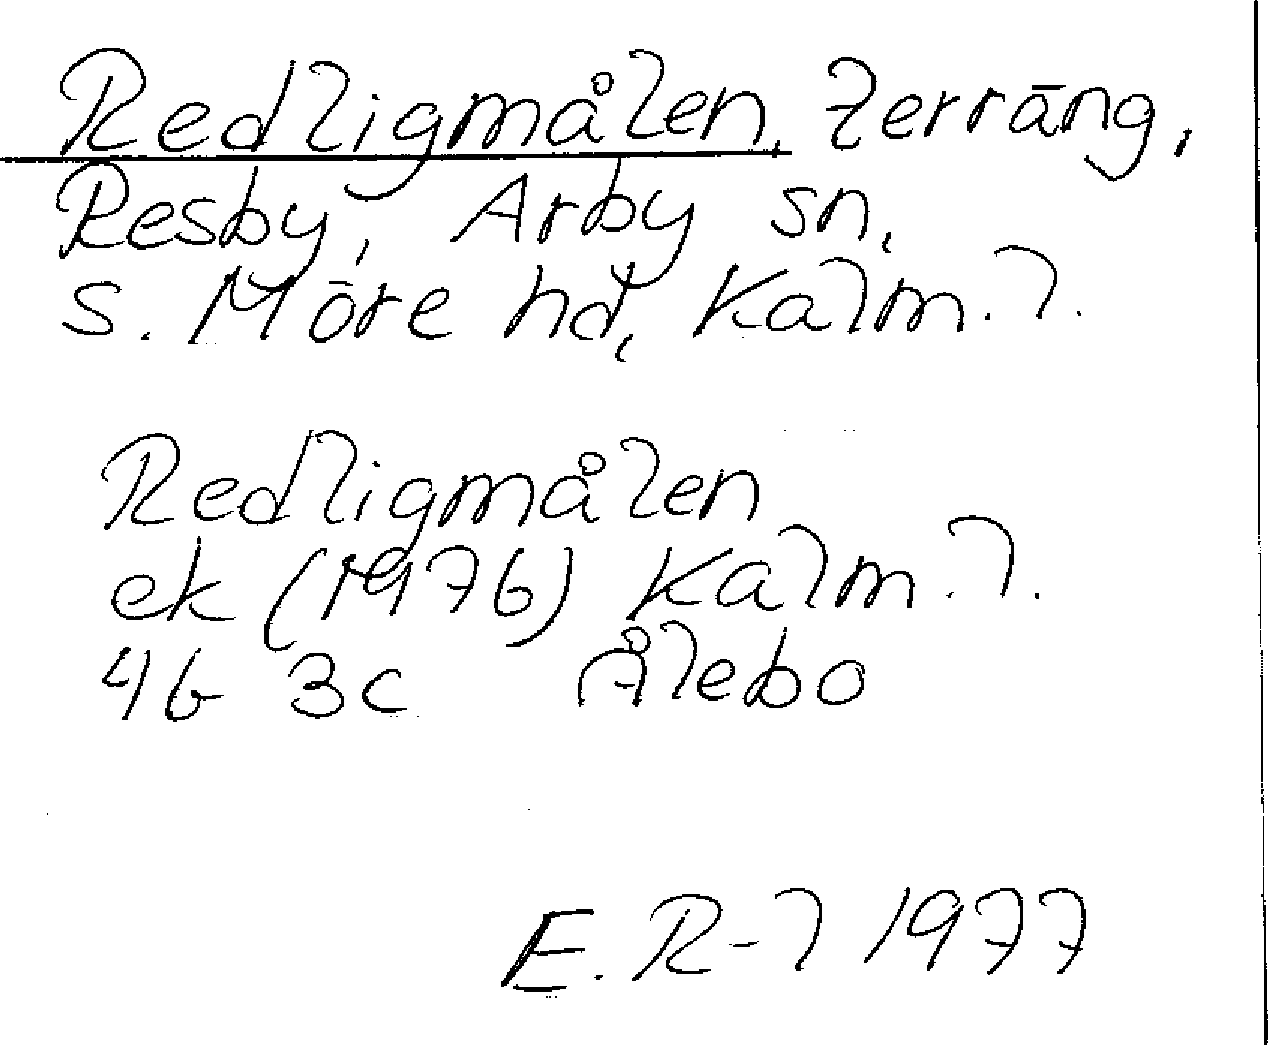 Redligmålen, terräng,
Resby, Arby sn,
S. Möre hd, Kalm. l.
Redligmålen
ek (1976) Kalm. l.
4G 3c Ålebo
E. R-l 1977